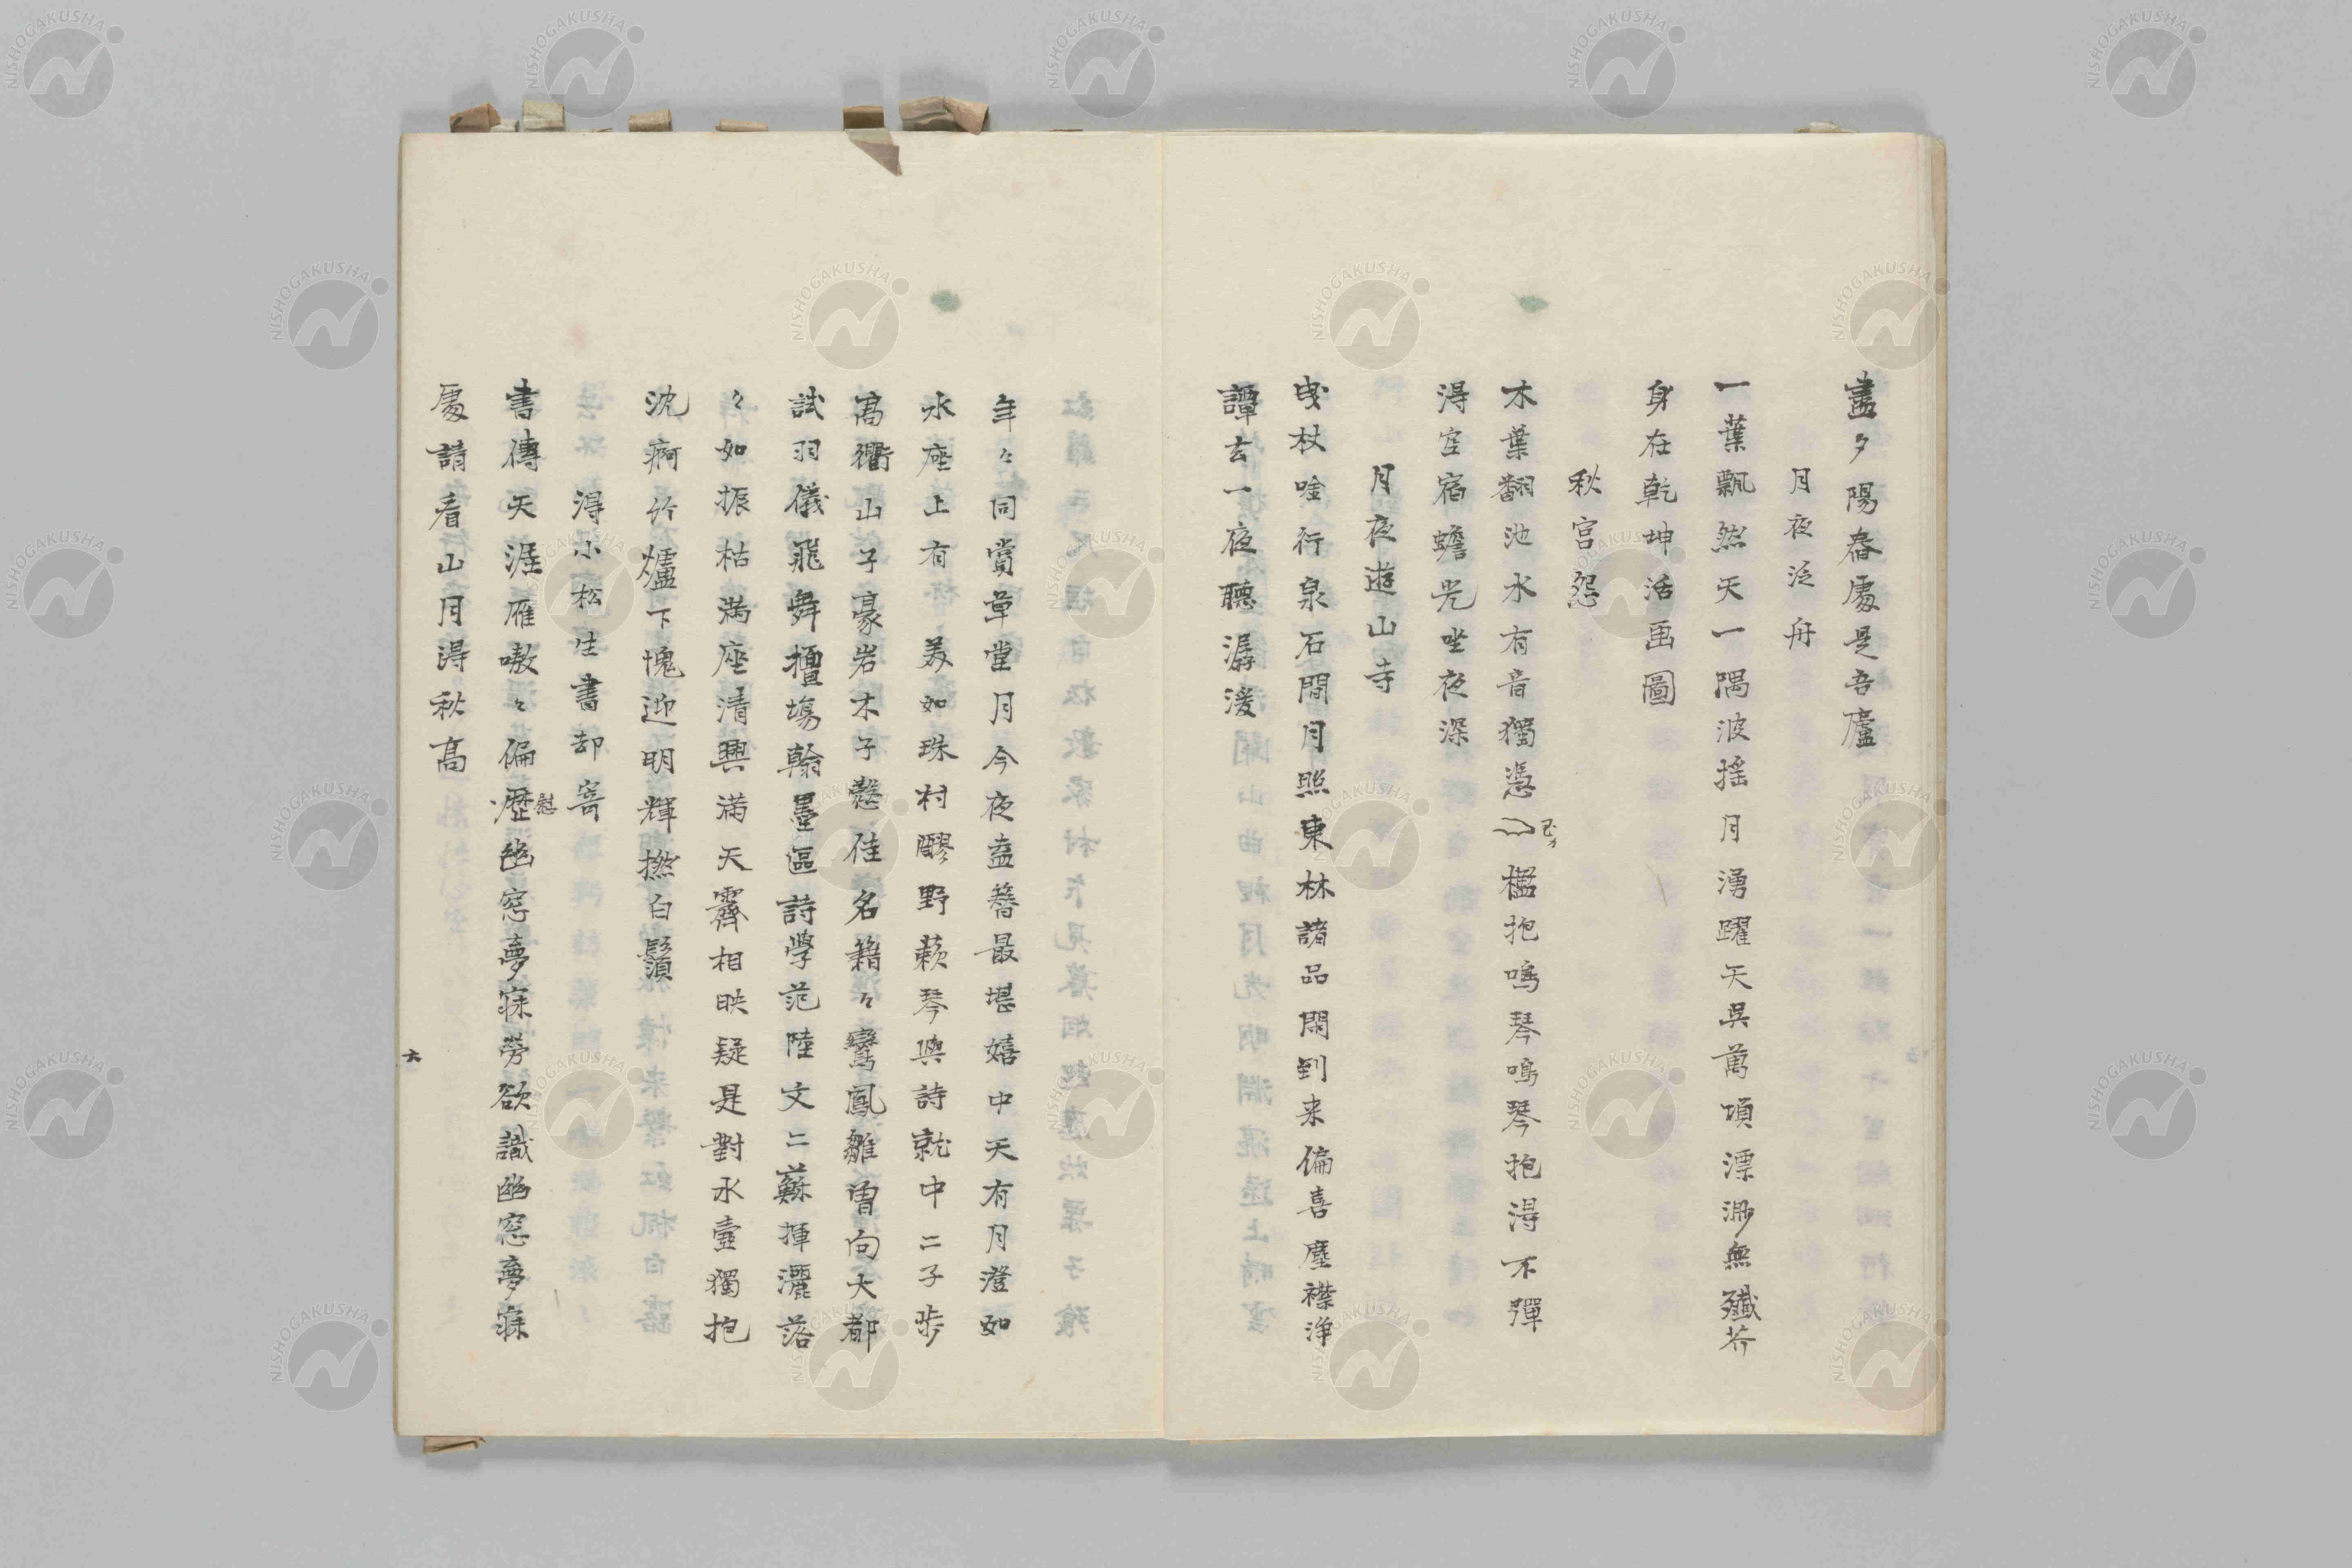 盡夕陽舂處是吾廬
月夜泛舟
一葉飄然天一隅波揺月湧躍天呉萬頃漂渺無纖芥
身在乾坤活画圖
秋宮怨
木葉翻池水有音獨憑檻抱鳴琴鳴琴抱得不彈
得空宿蟾光坐夜深
月夜遊山寺
曳杖唫行泉石間月照東林諸品閑到来偏喜塵襟浄
譚玄一夜聽潺湲
年々同賞草堂月今夜盍簪最堪嬉中天有月澄如
氷座上有 美如珠村醪野蔌琴與詩就中二子歩
高衢山子豪岩木子懿佳名籍々鸞鳳雛曽向大都
試羽儀飛舞擅塲翰墨區詩学范陸文二蘇揮灑落
々如振枯満座清興満天霽相映疑是對氷壷獨抱
沈痾竹爐下愧迎明輝撚白鬚
得小松生書却寄
書傳天涯雁嗷々偏慰歴幽窓夢寐勞欲識幽窓夢寐
處請看山月得秋高
六
NISHOGAKUSHA